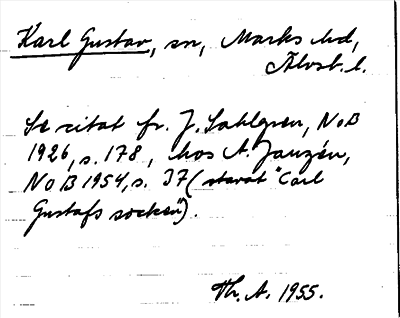 Karl Gustav, sn, Marks hd,
Älvsb. l.
Se citat fr. J. Sahlgren, NoB
1926, s. 178, hos A. Janzén,
NoB 1954, s. 37 ( "Carl
Gustafs socken").
Th. A. 1955.